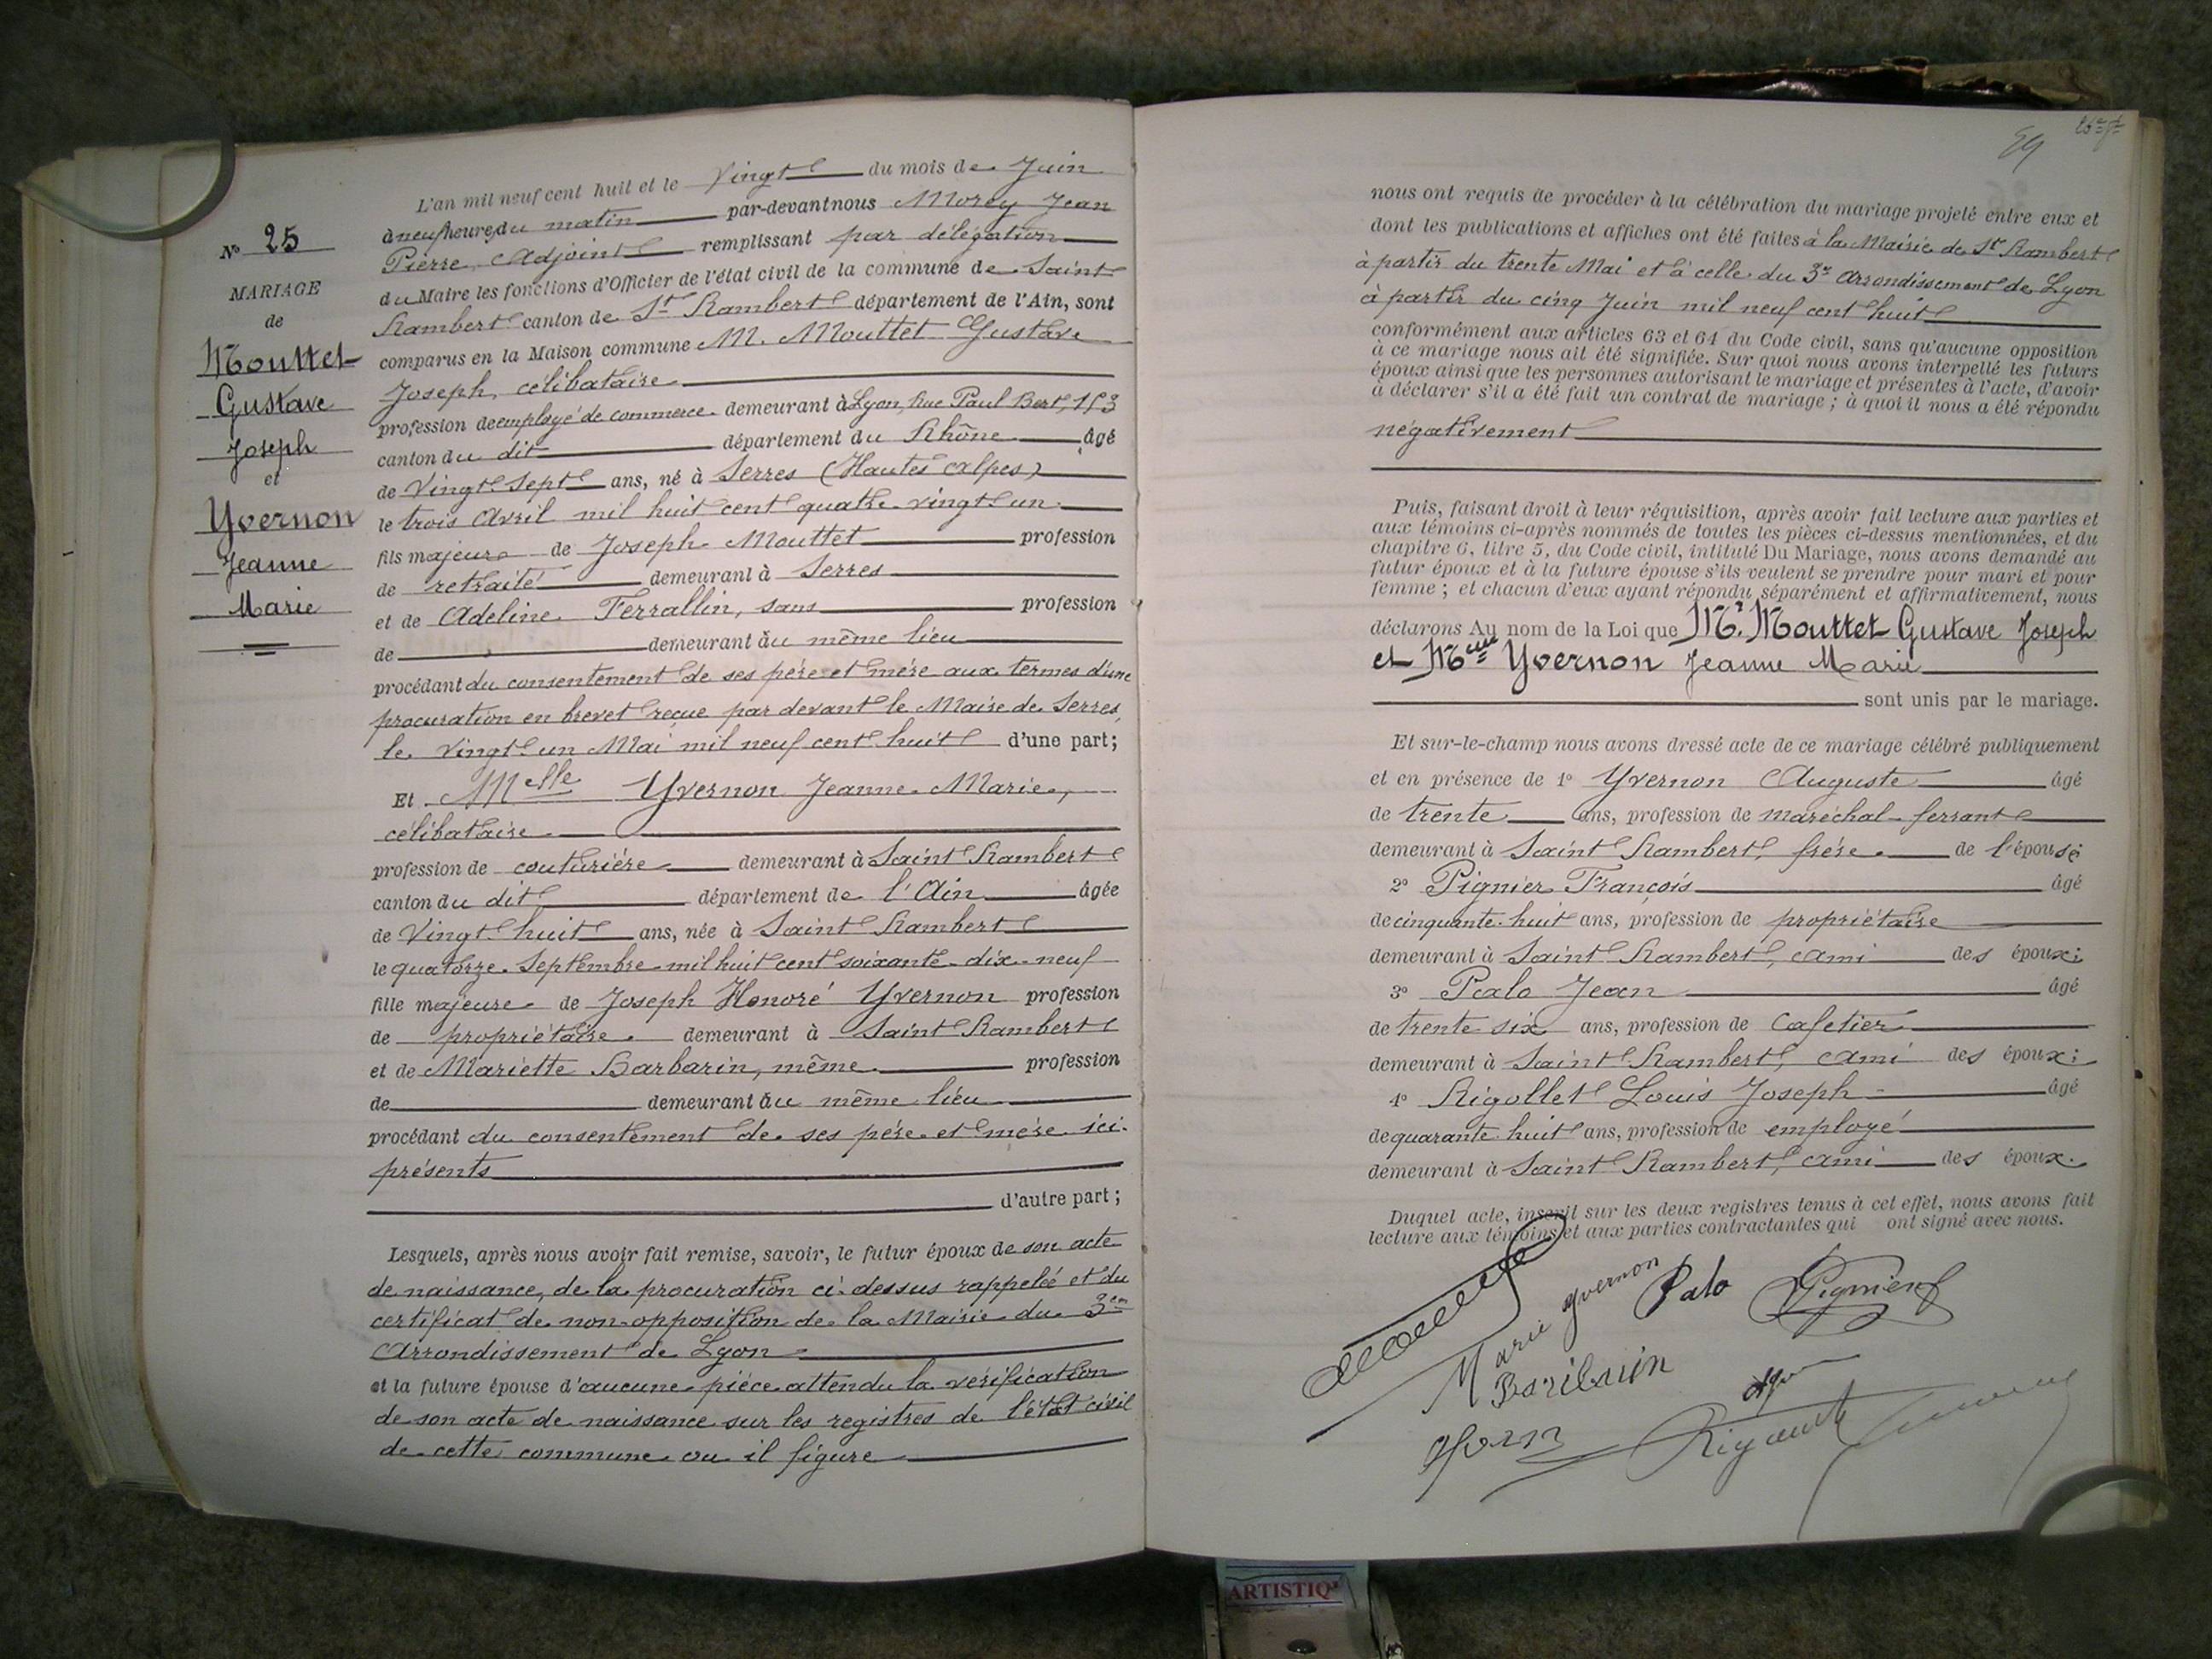 N° 25
MARIAGE
de
Mouttet
Gustave
Joseph
et
Yvernon
Jeanne
Marie
L'an mil neuf cent huit et le Vingt du mois de Juin
à neuf heures du matin par-devant nous Morey Jean
Pierre Adjoint remplissant par délégation
du Maire les fonctions d'Officier de l'état civil de la commune de Saint
Rambert canton de St Rambert département de l'Ain, sont
comparus en la Maison commune M. Mouttet Gustave
Joseph, célibataire
profession de employé de commerce demeurant à Lyon, Rue Paul Bert,
canton du dit département du Rhône âgé
de Vingt Sept ans, né à Serres (Hautes Alpes)
le trois Avril mil huit cent quatre-vingt un
fils majeur de Joseph Mouttet profession
de retraité demeurant à Serres
et de Adeline Ferrallin, sans profession
de demeurant au même lieu
procédant du consentement de ses père et mère aux termes d'une
procuration en brevet reçue par devant le Maire de Serres,
le Vingt un Mai mil neuf cent huit d'une part;
Et Melle Yvernon Jeanne Marie,
célibataire
profession de couturière demeurant à Saint Rambert
canton du dit département de l'Ain âgée
de Vingt huit ans, née à Saint Rambert
le quatorze Septembre mil huit cent soixante-dix-neuf
fille majeure de Joseph Honoré Yvernon profession
de propriétaire demeurant à Saint Rambert
et de Mariette Barbarin, même profession
de demeurant au même lieu
procédant du consentement de ses père et mère ici
présents
d'autre part;
Lesquels, après nous avoir fait remise, savoir, le futur époux de son acte
de naissance, de la procuration ci-dessus rappelée et du
certificat de non-opposition de la Mairie du 3em
Arrondissement de Lyon
et la future épouse d'aucune pièce attendu la vérification
de son acte de naissance sur les registres de l'état civil
de cette commune ou il figure
59
nous ont requis de procéder à la célébration du mariage projeté entre eux et
dont les publications et affiches ont été faites à la Mairie de St Rambert
à partir du trente Mai et à celle du 3e Arrondissement de Lyon
à partir du cinq Juin mil neuf cent huit
conformément aux articles 63 et 64 du Code civil, sans qu'aucune opposition
à ce mariage nous ait été signifiée. Sur quoi nous avons interpellé les futurs
époux ainsi que les personnes autorisant le mariage et présentes à l'acte, d'avoir
à déclarer s'il a été fait un contrat de mariage; à quoi il nous a été répondu
négativement
Puis, faisant droit à leur réquisition, après avoir fait lecture aux parties et
aux témoins ci-après nommés de toutes les pièces ci-dessus mentionnées, et du
chapitre 6, titre 5, du Code civil, intitulé Du Mariage, nous avons demandé au
futur époux et à la future épouse s'ils veulent se prendre pour mari et pour
femme; et chacun d'eux ayant répondu séparément et affirmativement, nous
déclarons Au nom de la Loi que Mr. Mouttet Gustave Joseph
et Melle Yvernon Jeanne Marie
sont unis par le mariage.
Et sur-le-champ nous avons dressé acte de ce mariage célébré publiquement
et en présence de 1° Yvernon Auguste âgé
de trente ans, profession de maréchal-ferrant
demeurant à Saint Rambert, frère de l'épouse
2° Pignier François âgé
de cinquante-huit ans, profession de propriétaire
demeurant à Saint Rambert, ami des époux;
3° Palo Jean âgé
de trente six ans, profession de Cafetier
demeurant à Saint Rambert, ami des époux;
4° Rigollet Louis Joseph âgé
de quarante-huit ans, profession de employé
demeurant à Saint Rambert, ami des époux.
Duquel acte, inscrit sur les deux registres tenus à cet effet, nous avons fait
lecture aux témoins et aux parties contractantes qui ont signé avec nous.
Marie Yvernon
Palo
Pignier
ARTISTIQ